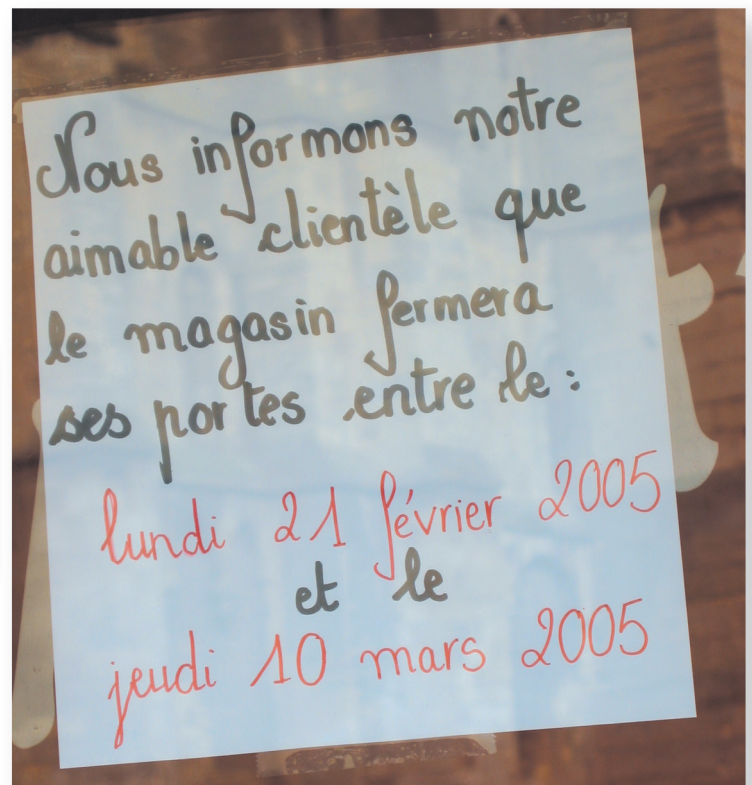 Nous informons notre
aimable clientèle que
le magasin fermera
ses portes entre le :
lundi 21 février 2005
et le
jeudi 10 mars 2005